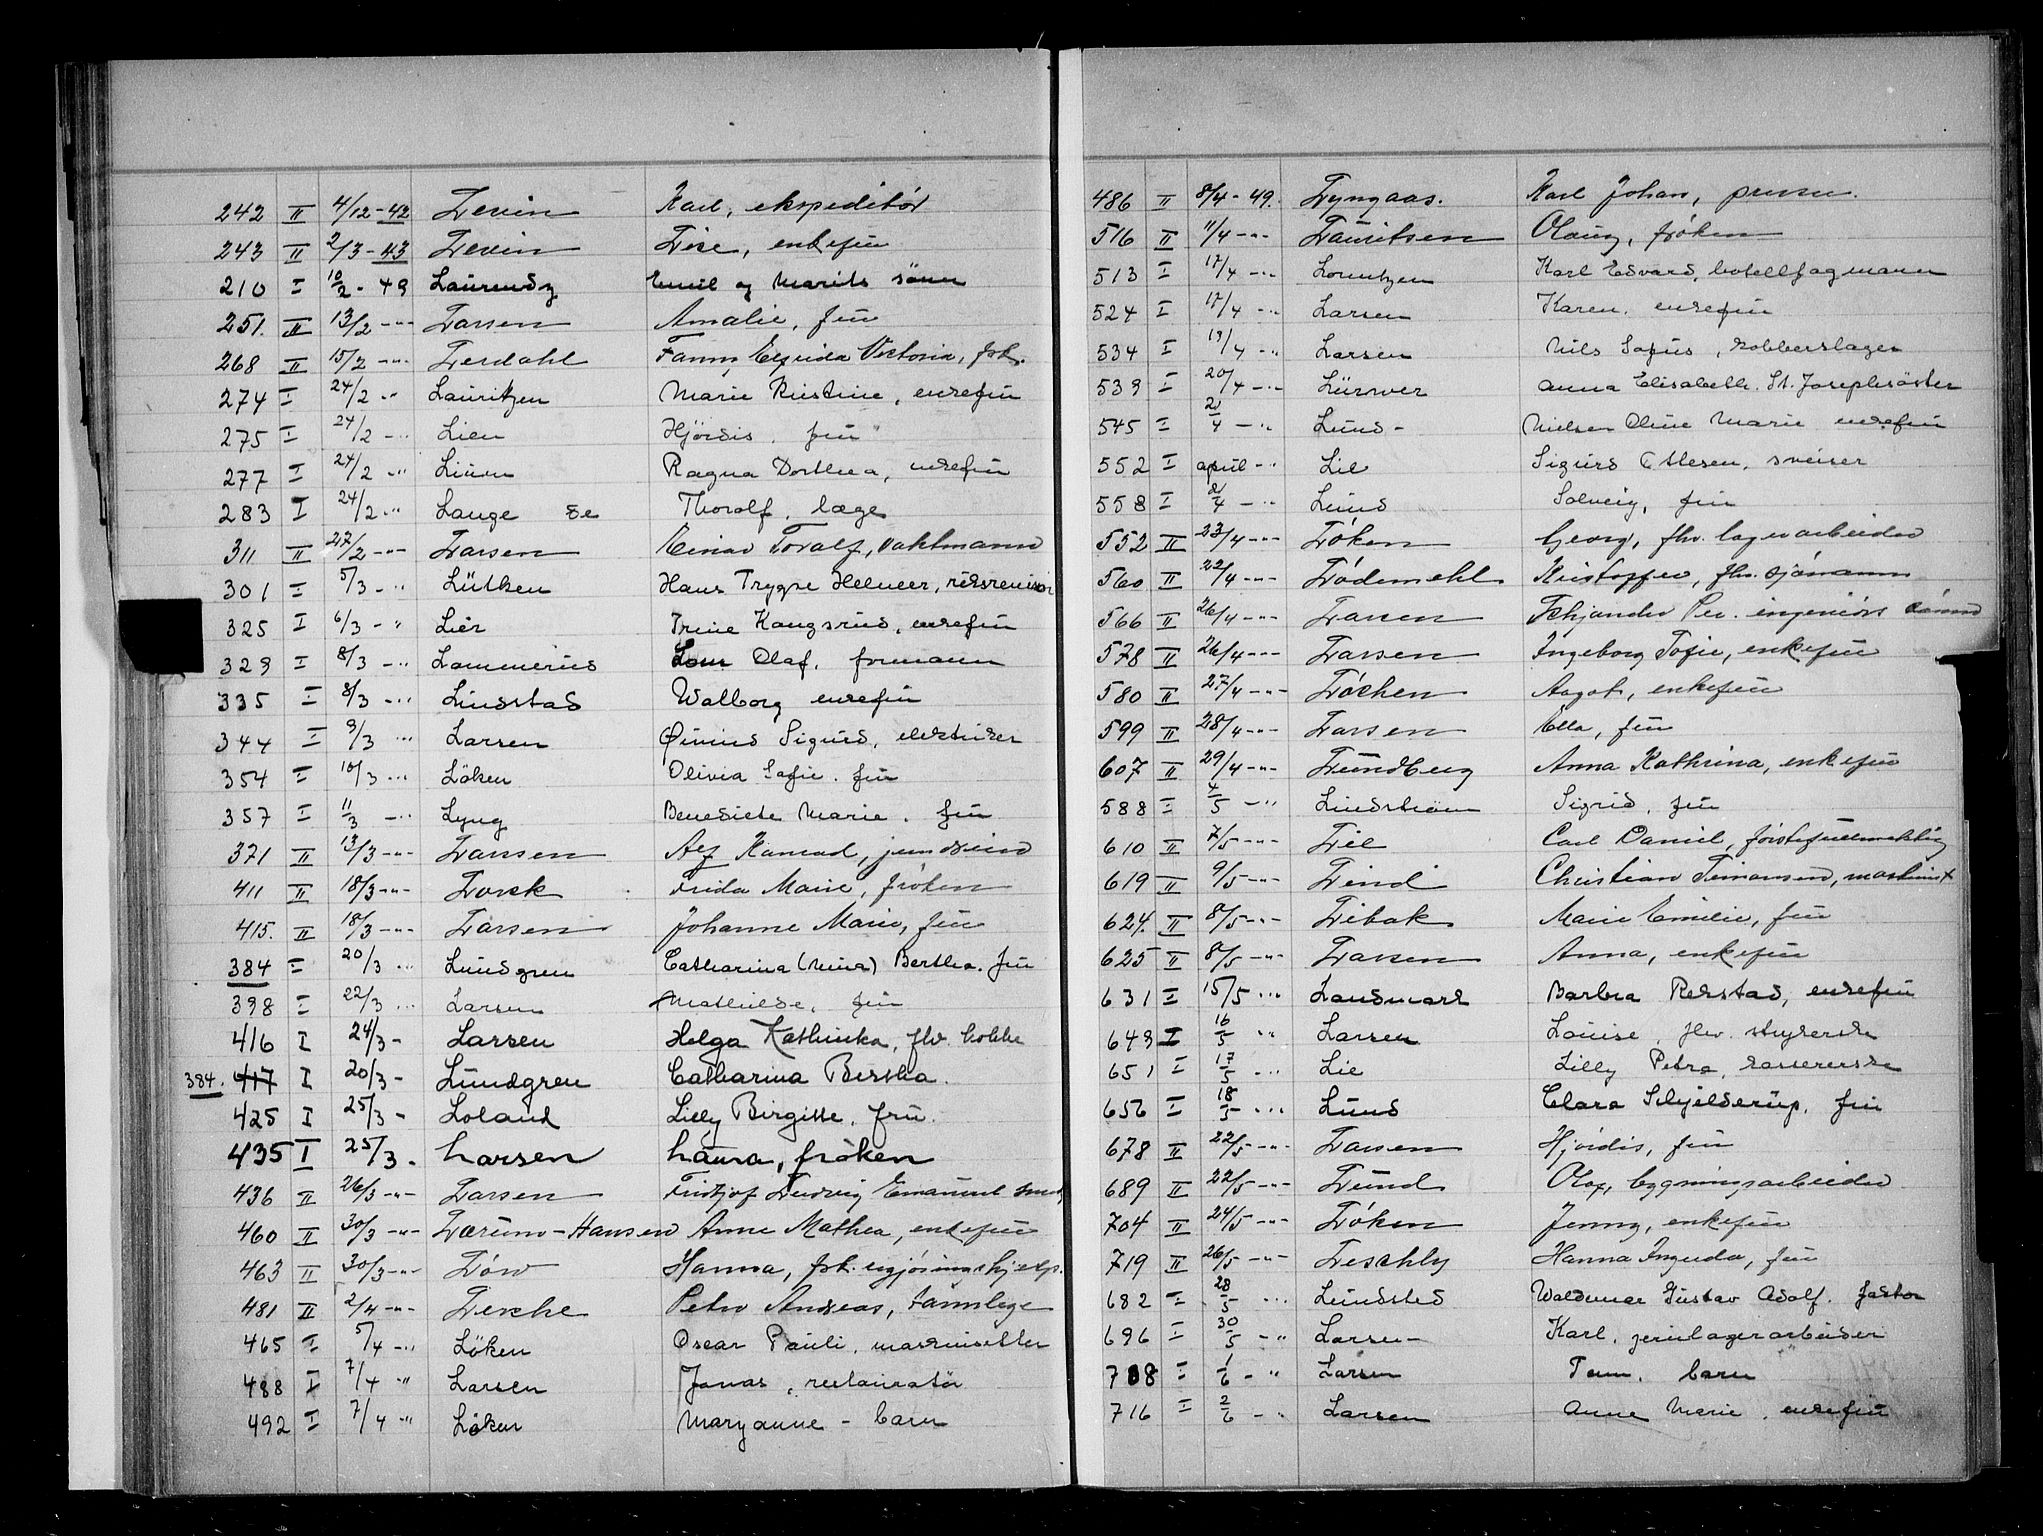 242 II 4/12-42 Levin Karl, ekspeditør
243 II 2/3-43 Levin Lise, enkefru
210 I 10/2-49 Laurendz Emil og Marits sönn
251. II 13/2 -"- Larsen Amalie, fru
268 II 15/2 -"- Lerdahl Fanny Elfrida Victoria, frk.
274 I 24/2 -"- Lauritzen Marie Kristine, enkefru
275 I 24/2 -"- Lien Hjördis. fru
277 I 24/2 -"- Linn Ragna Dorthea, enkefru
283 I 24/2 -"- Lange de Thorolf. læge
311 II 27/2 -"- Larsen Einar Toralf, vaktmann
301 I 5/3 -"- Lütken Hans Trygve Helmer, riksrevisor
325 I 6/3 -" Lier Irene Kongsrud, enkefru
329 I 8/3 -"- Lammerius Olaf. formann
335 I 8/3 -"- Lindstad Walborg enkefru
344 I 9/3 -"- Larsen Sigurd, elektriker
354 I 10/3 -"- Löken Olivia Sofie. fru
357 I 11/3 -"- Lyng Benedicte Marie. fru
371 II 13/3 -"- Larssen Alf Konrad, jerndreier
411 II 18/3 -"- Lorck Frida Marie, frøken
415. II 18/3 -"- Larsen Johanne Marie, fru
384 I 20/3 -"- Lundgren Catharina (Mina) Bertha. fru
398 I 22/3 -"- Larsen Mathilde, fru
416 I 24/3 - Larsen Helga Kathinka, fhv. kokke
384. 417 I 20/3 - Lundgren Catharina Bertha.
425 I 25/3 - Loland Lilly Birgitte, fru.
435 I 25/3. Larsen Laura, frøken
436 II 26/3 -"- Larsen Fridtjof Ludvig Emanuel smed
460 II 30/3 -"- Lærum-Hansen Anne Mathea, enkefru
463 II 30/3 -"- Löw Hanna, frk. rengjøringshjelp.
481 II 2/4 -"- Lerche Petro Andreas, tannlege
465 I 5/4 -"- Löken Oscar Pauli. maskinsetter
488 I 7/4 -"- Larsen Jonas, restauratör
492 I 7/4 -"- Löken Maryanne - barn
486 II 8/4-49. Lyngaas. Karl Johan, presser.
516 II 11/4 -"- Lauritsen Olaug, frøken
513 I 17/4 -"- Lorentzen Karl Edvard, hotellfagmann
524 I 17/4 -"- Larsen Karen. enkefru
534 I 19/4 -"- Larsen Nils Sofus, kobberslager
539 I 20/4 -"- Lürwer Anna Elisabeth. St. Josephsöster
545 I 21/4 -"- Lund - Nielsen Oline Marie enkefru
552 I april -"- Lie Sigurd Ottesen, sveiser
558 I 21/4 -"- Lund Solveig, fru
552 II 23/4 -"- Løken Georg, fhv. lagerarbeider
560 II 22/4 -"- Lødemehl Kristoffer, fhv. sjømann
566 II 26/4 -"- Larsen Schjander Per. ingeniørs sønn
578 II 26/4 -"- Larsen Ingeborg Sofie, enkefru
580 II 27/4 -"- Løchen Aagot, enkefru
599 II 28/4 -"- Larsen Ella, fru
607 II 29/4 -"- Lundberg Anna Kathrina, enkefru
588 I 4/5 -"- Lindström Sigrid, fru
610 II 7/5 -"- Lie Carl Daniel, førstefullmektig
619 II 9/5 -"- Lind Christian Simonsen, maskinist
624. II 8/5 -"- Libak Marie Emilie, fru
625 II 8/5 -"- Larsen Anna, enkefru
631 I 15/5 -"- Landmark Barbra Rekstad, enkefru
649 I 16/5 -" Larsen Louise, fhv. strykerske
651 I 17/5 -"- Lie Lilly Petra, kassererske
656 I 18/5 -"- Lund Clara Schjelderup. fru
678 II 22/5 -"- Larsen Hjørdis, fru
689 II 22/5 -"- Lund Olaf, bygningsarbeider
704 II 24/5 -"- Løken Jenny, enkefru
719 II 26/5 -"- Leschly Hanna Ingrida, fru
682 I 28/5 -"- Lundsted Waldemar Gustav Adolf. faktor
696 I 30/5 -"- Larsen - Karl, jernlagerarbeider
708 I 1/6 -" Larsen Tom. barn
716 I 2/6 -"- Larsen Anne Marie, enkefru